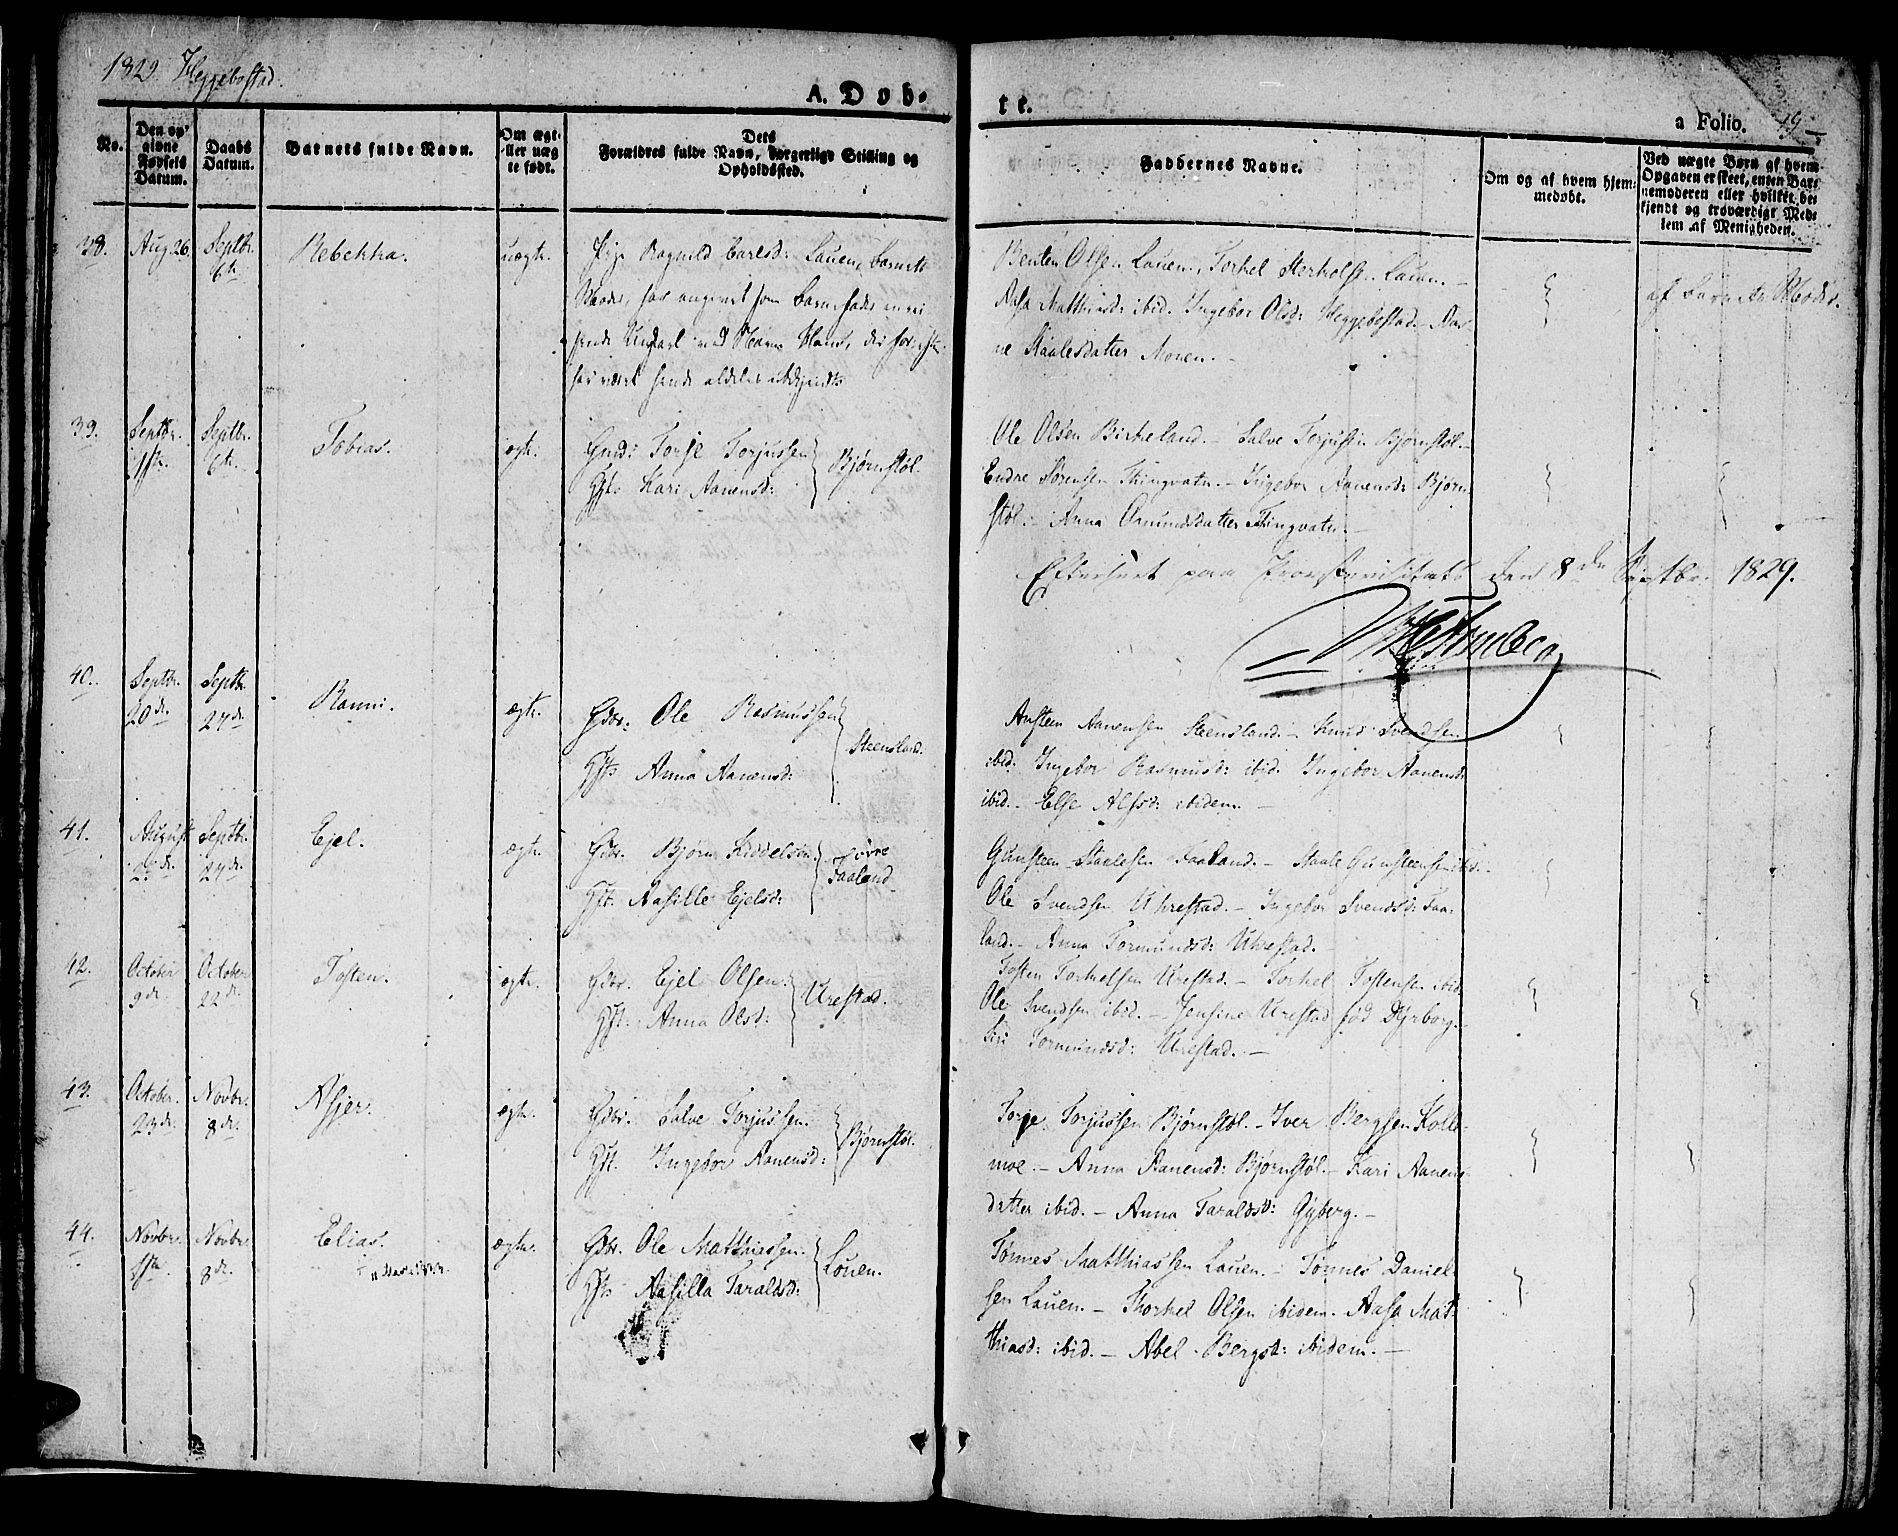 1829. Heggebostad.
A. Døb-
te.
a Folio. 49
No.
Den op-
givne
Fødsels
Datum.
Daabs
Datum.
Barnets fulde Navn.
Om ægt-
eller uæg
te født.
Dets
Forældres fulde Navn, borgerlige Stilling og
Opholdssted.
Faddernes Navne.
Om og af hvem hjem-
medøbt.
Ved uægte Børn af hvem
Opgaven er skeet, enten Bar-
nemoderen eller hvilket be-
kjendt og troværdigt Med-
lem af Menigheden.
38. Aug. 26. Septbr. 6te Rebekka. uægte. Pige Ragnild Carlsd: Lauen, Barnets
Moder, har angivet som Barnefader en rei
sende Ungkarl ved Navn Hans, der for
har været hende aldeles ubekjendt
Benten Olsen Lauen, Torkel Lauen.
Aasa Matthiasd: ibid. Ingebor Olsd: Heggebostad.
ne Staalesdatter Monen.
af Barnets Moder.
39. Septbr. 1ste. Septbr. 6te. Tobias. ægte. Gmd: Torje Torjussen
Hst. Kari Aanensd: Bjørnstøl.
Ole Olsen Birkeland. Salve Torjussen Bjørnstøl.
Endre Sørensen Thingvatn. Ingebor Aanensd: Bjørn-
støl. Anna Omundsdatter Thingvatn.
Efterseet paa Provstevisitats den 8de Septbr. 1829.
40. Septbr. 20de. Septbr. 27de. Ranni. ægte. Gdbr. Ole Rasmussen
Hst. Anna Aanensd: Steensland.
Austeen Aanensen Steensland. Knud Svendsen
ibid: Ingebor Rasmusd: ibid. Ingebor Aanensd:
ibid. Else Alfsd: ibidem.
41. August 23de. Septbr. 27de. Ejel. ægte. Gdbr. Bjørn Kiddelsen
Hst. Aasille Ejelsd: Øvre
Faaland.
Gunsteen Staalesen Faaland. Staale Gunsteensen ibid.
Ole Svendsen Uhrestad. Ingebor Svendsd: Faa-
land. Anna Tormundsd: Uhrestad.
42. October 9de. October 22de. Tosten. ægte. Gdbr. Ejel Olsen.
Hst. Anna Olsd: Urestad.
Tosten Torkelsen Urestad. Torkel Tostensen ibid.
Ole Svendsen ibid. Jensine Urestad fød Dyrborg.
Siri Tormundsd: Urestad.
43. October. 23de. Novbr. 8de. Asjer. ægte. Gdbr. Salve Torjussen.
Hst. Ingebor Aanensd: Bjørnstøl.
Torje Torjussen Bjørnstøl. Iver Bergsen Kolle-
moe. Anna Aanensd: Bjørnstøl. Kari Aanens-
datter ibid. Anna Taraldsd: Gyberg.
44. Novbr. 1ste. Novbr. 8de. Elias. ægte. Gdbr. Ole Matthiassen.
Hst. Aasilla Taraldsd: Louen.
Tønnes Matthiassen Lauen. Tønnes Daniel-
sen Lauen. Thorkel Olsen ibidem. Aasa Mat-
thiasd: ibid. Abel Bergsd: ibidem.